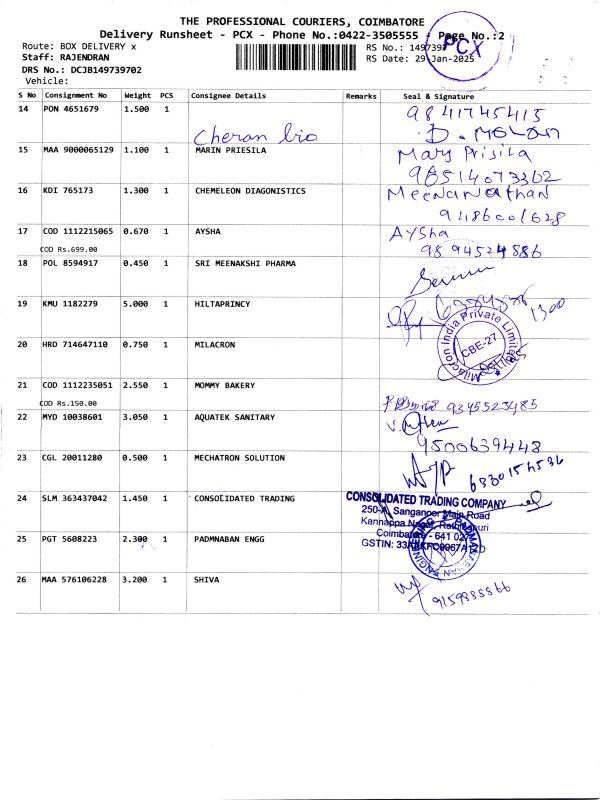 THE PROFESSIONAL COURIERS, COIMBATORE
Delivery Runsheet - PCX - Phone No.:0422-3505555 - Page No.:2
PCX
Route: BOX DELIVERY x
RS No.: 1497397
Staff: RAJENDRAN
RS Date: 29-Jan-2025
DRS No.: DCJB149739702
Vehicle:
S No Consignment No Weight PCS Consignee Details Remarks Seal & Signature
14 PON 4651679 1.500 1 9841745415
Cheran bio D. MOHAN
15 MAA 9000065129 1.100 1 MARIN PRIESILA Mary Prisila
98514073362
16 KDI 765173 1.300 1 CHEMELEON DIAGONISTICS Meenanathan
9486001628
17 COD 1112215065 0.670 1 AYSHA AYSha
COD Rs.699.00 9894524886
18 POL 8594917 0.450 1 SRI MEENAKSHI PHARMA
19 KMU 1182279 5.000 1 HILTAPRINCY 1300
20 HRD 714647110 0.750 1 MILACRON Milacron India Private Limited
CBE-27
21 COD 1112235051 2.550 1 MOMMY BAKERY
COD Rs.150.00 9345523485
22 MYD 10038601 3.050 1 AQUATEK SANITARY
9500639448
23 CGL 20011280 0.500 1 MECHATRON SOLUTION
6380154536
24 SLM 363437042 1.450 1 CONSOLIDATED TRADING CONSOLIDATED TRADING COMPANY
250-A, Sanganoor Main Road
Kannappa Nagar, Rathinapuri
Coimbatore - 641 027
GSTIN:
25 PGT 5608223 2.300 1 PADMNABAN ENGG
26 MAA 576106228 3.200 1 SHIVA
9159888866